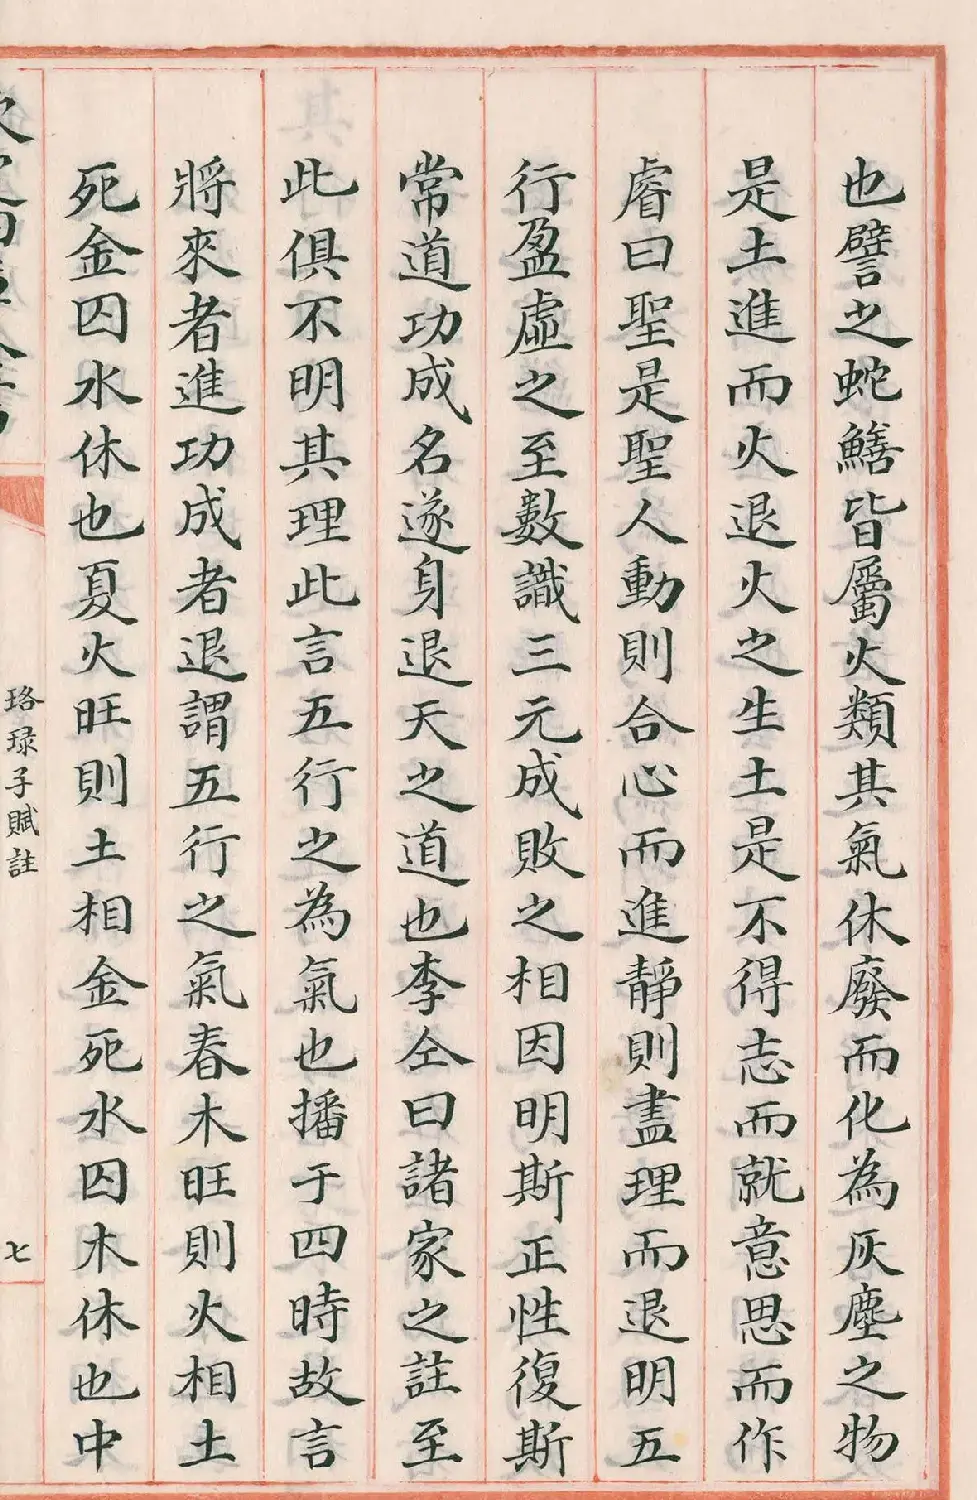 也譬之蛇鱔皆屬火類其氣休廢而化為灰塵之物
是土進而火退火之生土是不得志而就意思而作
睿曰聖是聖人動則合心而進靜則盡理而退明五
行盈虛之至數識三元成敗之相因明斯正性復斯
常道功成名遂身退天之道也李仝曰諸家之註至
此俱不明其理此言五行之為氣也播于四時故言
將來者進功成者退謂五行之氣春木旺則火相土
死金囚水休也夏火旺則土相金死水囚木休也中
珞琭子賦註
七